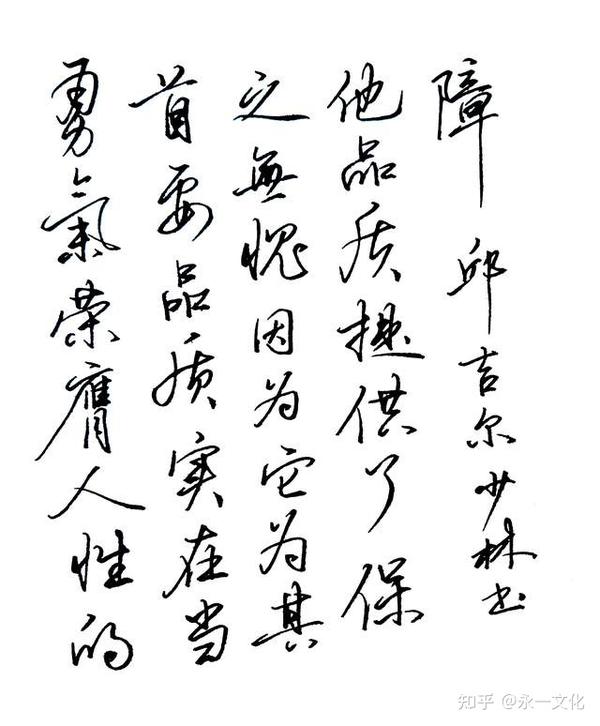 勇氣荣膺人性的
首要品质实在当
之無愧因为它为其
他品质提供了保
障 邱吉尔 少林书
知乎 @永一文化